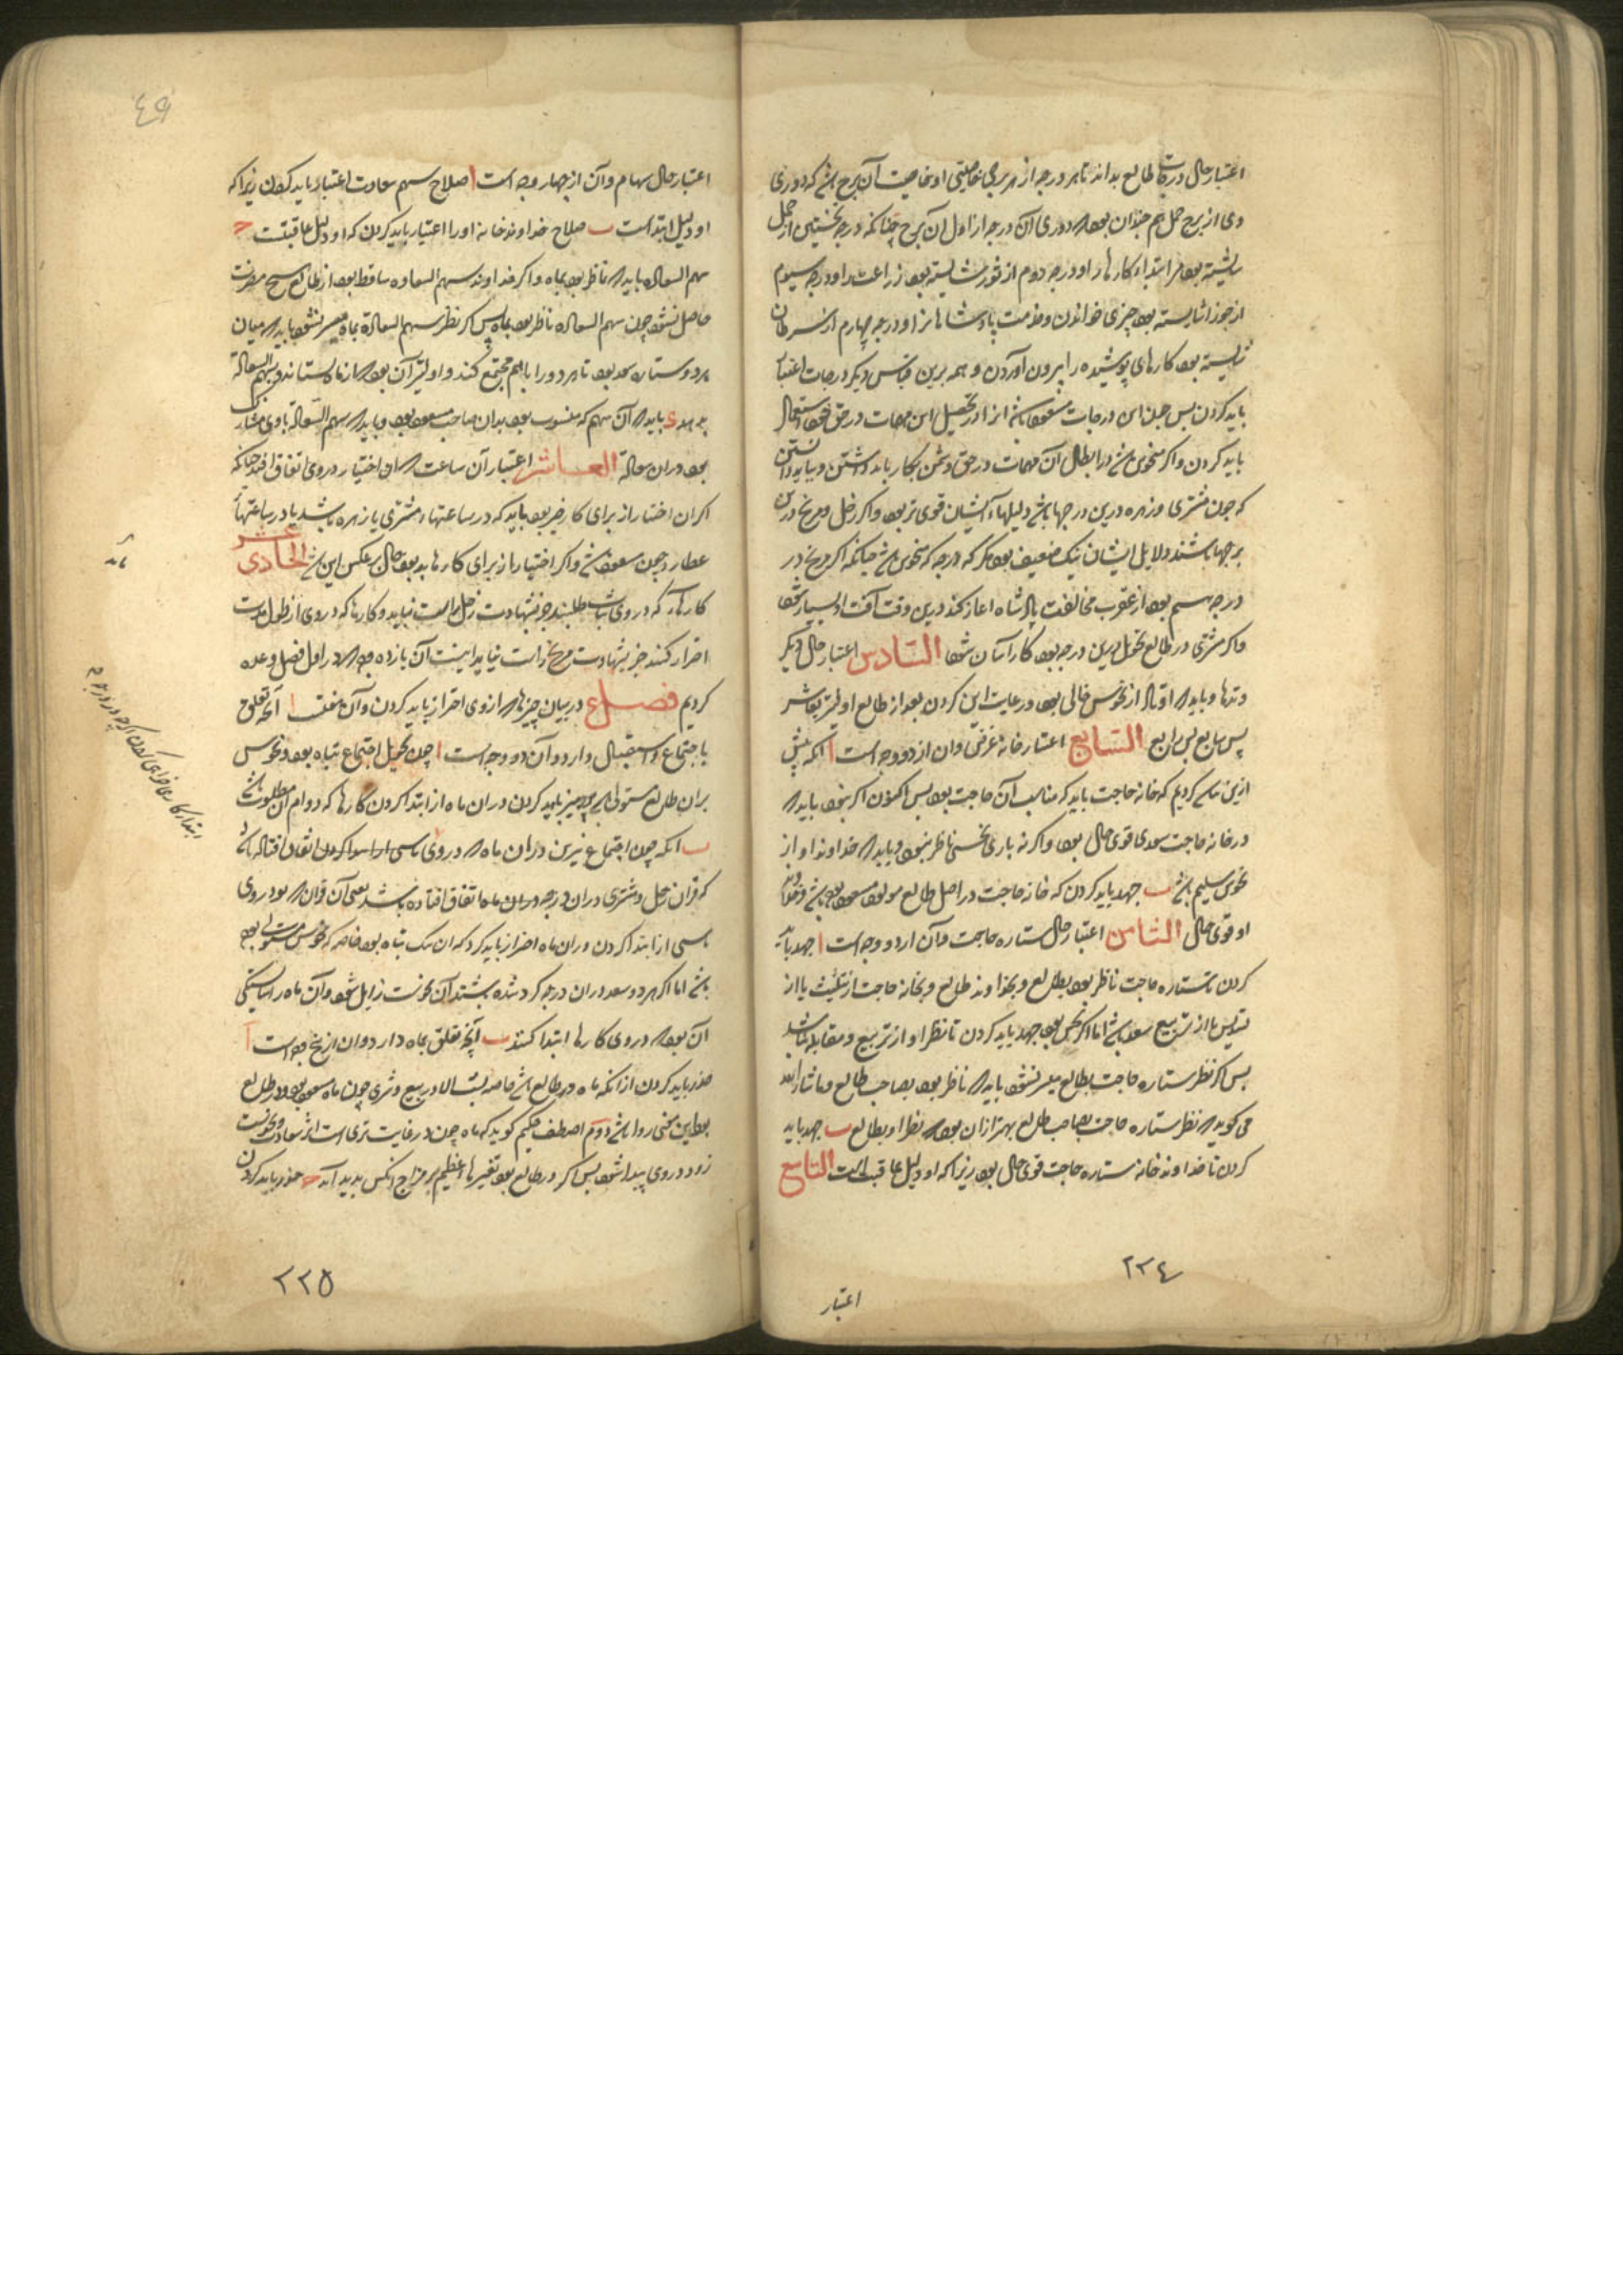 اعتبار حال درجات طالع بداند تا هر درجه از هر برجی خاصیتی او خاصیت آن برج باشد که دوری
وی از برج حمل هم چندان بود که دوری آن درجه از اول آن برج چنانکه درجه نخستین از حمل
شایسته بود مر ابتداء کارها را و درجه دوم از ثور شایسته بود زراعت را و درجه سیوم
از جوزا شایسته بود چیزی خواندن و خدمت پادشاهانرا و درجه چهارم از سرطان
شایسته بود کارهای پوشیده را بیرون آوردن و همه برین قیاس دیگر درجات اعتبار
باید کردن پس چون این درجات مسعود باشد انرا در تحصیل این مهمات در حق خود استعمال
باید کردن و اگر منحوس باشد در ابطال آن مهمات در حق دشمن بکار باید داشتن و بباید دانستن
که چون مشتری و زهره درین درجها باشد دلیلهاء ایشان قوی تر بود و اگر زحل و مریخ درین
برجها باشند دلایل ایشان نیک ضعیف بود مگر که درجه که منحوس باشد چنانکه اگر مریخ در
درجه سیم بود از عقرب مخالفت پادشاه اغاز کند درین وقت آفت او بسیار شود
و اگر مشتری در طالع تحویل درین درجه بود کار آسان شود السّادس اعتبار حال دیگر
وتدها و باید که اوتاد از نحوس خالی بود و رعایت این کردن بعد از طالع اولیتر بعاشر
پس سابع پس رابع السّابع اعتبار خانه غرض و ان از دو وجه است ا انکه پیش
ازین یاد کردیم که خانه حاجت باید که مناسب آن حاجت بود پس اکنون اگر بود باید که
در خانه حاجت سعدی قوی حال بود و اگر نه باری نحسی ناظر نبود و باید که خداوند او از
نحوس سلیم باشد ب جهد باید کردن که خانه حاجت در اصل طالع مولود مسعود بوده باشد و خداوند
او قوی حال الثامن اعتبار حال ستاره حاجت و آن از دو وجه است ا جهد باید
کردن تا ستاره حاجت ناظر بود بطالع و بخداوند طالع و بخانه حاجت از تثلیث یا از
تسدیس یا از تربیع سعد باشد اما اگر نحس بود جهد باید کردن تا نظر او از تربیع و مقابله نباشد
پس اگر نظر ستاره حاجت بطالع میسر نشود باید که ناظر بود بصاحب طالع و ماشاء الله
می گوید که نظر ستاره حاجت بصاحب طالع بهتر ازان بود که نظر او بطالع ب جهد باید
کردن تا خداوند خانه ستاره حاجت قوی حال بود زیرا که او دلیل عاقبت است التاسع
٢٢٤
اعتبار
٤٩
اعتبار حال سهام و آن از چهار وجه است ا صلاح سهم سعادت اعتبار باید کردن زیرا که
او دلیل ابتداست ب صلاح خداوند خانه او را اعتبار باید کردن که او دلیل عاقبتست ج
سهم السعاده باید که ناظر بود بماه و اگر خداوند سهم السعاده ساقط بود از طالع هیچ مضرت
حاصل نشود چون سهم السعاده ناظر بود بماه پس اگر نظر سهم السعادة بماه میسر نشود باید که میان
هر دو ستاره سعد بود تا هر دو را باهم مجتمع کند و اولیتر آن بود که از ماه بستاند و بسهم السعاده
بدهد د باید که آن سهم که منسوب بود بدان صاحب مسعود بود و باید که سهم السعاده با وی مشارک
بود دران سعادة العاشر اعتبار آن ساعت که این اختیار در وی اتفاق افتد چنانکه
اگر ان اختیار از برای کار خیر بود باید که در ساعتهاء مشتری یا زهره باشد یا در ساعتهاء
عطارد چون مسعود باشد و اگر اختیار از برای کارهاء بد بود حال بر عکس این باشد الحادی عشر
کارهاء که در وی ثبات طلبند جز بشهادت زحل راست نیاید و کارها که در وی از طول مدت
احتراز کنند جز بشهادت مریخ راست نیاید اینست آن یازده وجه که در اول فصل وعده
کردیم فصل ع در بیان چیزها که ازوی احتراز باید کردن و آن هفتست ا آنچه تعلق
باجتماع و استقبال دارد و آن دو وجه است ا چون تحویل اجتماع تباه بود و نحوس
بران طالع مستولی باشد پرهیز باید کردن دران ماه از ابتدا کردن کارها که دوام آن مطلوب باشد
ب انکه چون اجتماع نیرین دران ماه که در وی اتفاق افتاده باشد
که قران زحل و مشتری دران درجه و دران ماه اتفاق افتاده باشد یعنی آن قران که بود در وی
از ابتدا کردن دران ماه احتراز باید کرد که ان نیک تباه بود خاصه که نحوس مستولی بود
باشد اما اگر هر دو سعد دران درجه گرد شده باشند آن نحوست زایل شود و آن ماه را شایستگی
آن بود که در وی کارها ابتدا کنند ب آنچه تعلق بماه دارد و ان از پنج وجه است ا
حذر باید کردن از انکه ماه در طالع باشد خاصه چون ماه مسعود بود در طالع
روا باشد دوم حکیم گوید که ماه چون در غایت تری است اثر سعادت و نحوست
زود در وی پیدا شود پس اگر در طالع بود تغیرها عظیم بر مزاج انکس بدید آید ج حذر باید کردن
ابتدا کارها
٢٢٥